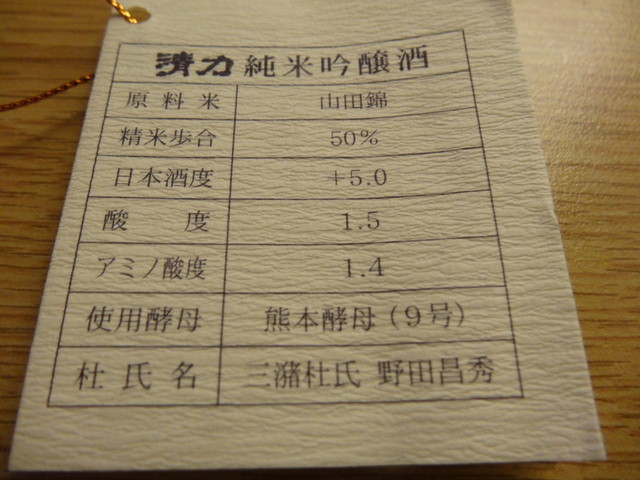 清力純米吟醸酒
原料米 山田錦
精米歩合 50%
日本酒度 +5.0
酸度 1.5
アミノ酸度 1.4
使用酵母 熊本酵母(9号)
杜氏名 三潴杜氏 野田昌秀